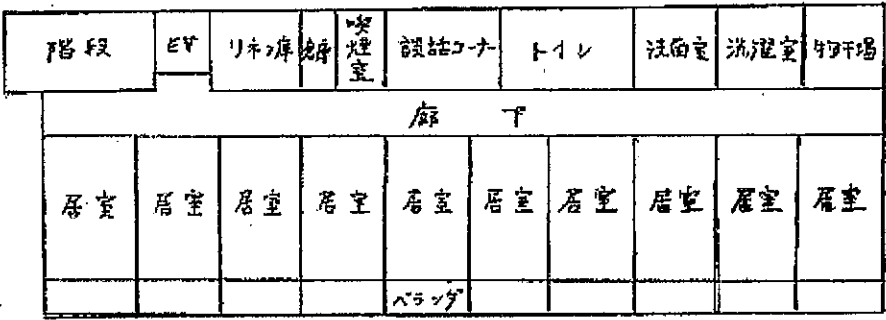 階段 EV リネン庫 倉庫 喫煙室 談話コーナー トイレ 洗面室 洗濯室 物干場
廊下
居室 居室 居室 居室 居室 居室 居室 居室 居室 居室
ベランダ